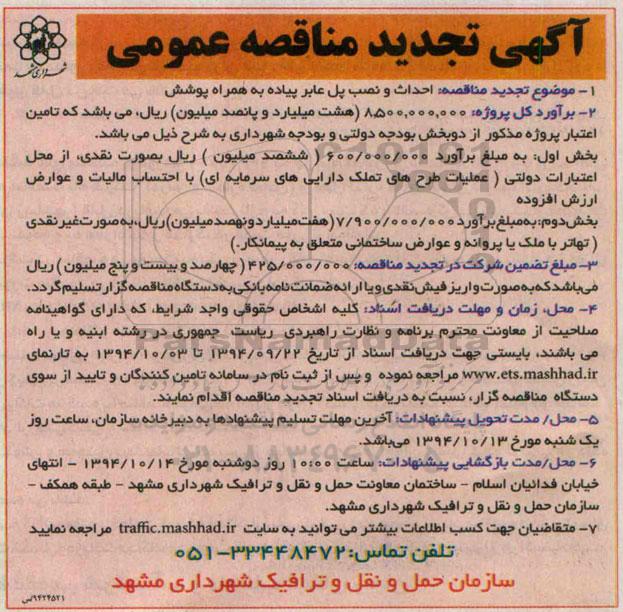 آگهی تجدید مناقصه عمومی
شهرداری مشهد
۱- موضوع تجدید مناقصه: احداث و نصب پل عابر پیاده به همراه پوشش
۲- برآورد کل پروژه: ۸,۵۰۰,۰۰۰,۰۰۰ (هشت میلیارد و پانصد میلیون) ریال، می باشد که تامین
اعتبار پروژه مذکور از دوبخش بودجه دولتی و بودجه شهرداری به شرح ذیل می باشد.
بخش اول: به مبلغ برآورد ۶۰۰/۰۰۰/۰۰۰ ( ششصد میلیون ) ریال بصورت نقدی، از محل
اعتبارات دولتی ( عملیات طرح های تملک دارایی های سرمایه ای) با احتساب مالیات و عوارض
ارزش افزوده
بخش دوم: به مبلغ برآورد ۷/۹۰۰/۰۰۰/۰۰۰ (هفت میلیارد و نهصد میلیون) ریال، به صورت غیر نقدی
( تهاتر با ملک یا پروانه و عوارض ساختمانی متعلق به پیمانکار.)
۳- مبلغ تضمین شرکت در تجدید مناقصه: ۴۲۵/۰۰۰/۰۰۰ ( چهارصد و بیست و پنج میلیون ) ریال
می باشد که به صورت واریز فیش نقدی و یا ارائه ضمانت نامه بانکی به دستگاه مناقصه گزار تسلیم گردد.
۴- محل، زمان و مهلت دریافت اسناد: کلیه اشخاص حقوقی واجد شرایط، که دارای گواهینامه
صلاحیت از معاونت محترم برنامه و نظارت راهبردی ریاست جمهوری در رشته ابنیه و یا راه
می باشند، بایستی جهت دریافت اسناد از تاریخ ۱۳۹۴/۰۹/۲۲ تا ۱۳۹۴/۱۰/۰۳ به تارنمای
www.ets.mashhad.ir مراجعه نموده و پس از ثبت نام در سامانه تامین کنندگان و تایید از سوی
دستگاه مناقصه گزار، نسبت به دریافت اسناد تجدید مناقصه اقدام نمایند.
۵- محل/ مدت تحویل پیشنهادات: آخرین مهلت تسلیم پیشنهادها به دبیرخانه سازمان، ساعت روز
یک شنبه مورخ ۱۳۹۴/۱۰/۱۳ می‌باشد.
۶- محل/مدت بازگشایی پیشنهادات: ساعت ۱۰:۰۰ روز دوشنبه مورخ ۱۳۹۴/۱۰/۱۴ - انتهای
خیابان فدائیان اسلام - ساختمان معاونت حمل و نقل و ترافیک شهرداری مشهد - طبقه همکف -
سازمان حمل و نقل و ترافیک شهرداری مشهد.
۷- متقاضیان جهت کسب اطلاعات بیشتر می توانید به سایت traffic.mashhad.ir مراجعه نمایید
تلفن تماس: ۳۳۴۴۸۴۷۲-۰۵۱
سازمان حمل و نقل و ترافیک شهرداری مشهد
۹۴۲۴۵۲۱/س